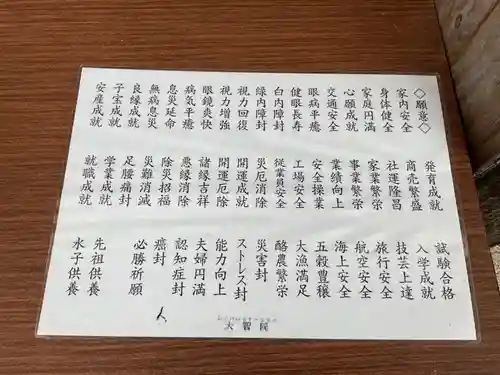 ◇願意◇
家内安全
身体健全
家庭円満
心願成就
交通安全
眼病平癒
健眼長寿
白内障封
緑内障封
視力回復
視力増強
眼鏡爽快
病気平癒
息災延命
無病息災
良縁成就
子宝成就
安産成就
発育成就
商売繁盛
社運隆昌
家業繁栄
事業繁栄
業績向上
安全操業
工場安全
従業員安全
災厄消除
開運成就
開運厄除
諸縁吉祥
悪縁消除
除災招福
災難消滅
足腰痛封
学業成就
就職成就
試験合格
入学成就
技芸上達
旅行安全
航空安全
海上安全
五穀豊穣
大漁満足
酪農繁栄
災害封
ストレス封
能力向上
夫婦円満
認知症封
癌封
必勝祈願
先祖供養
水子供養
大智院